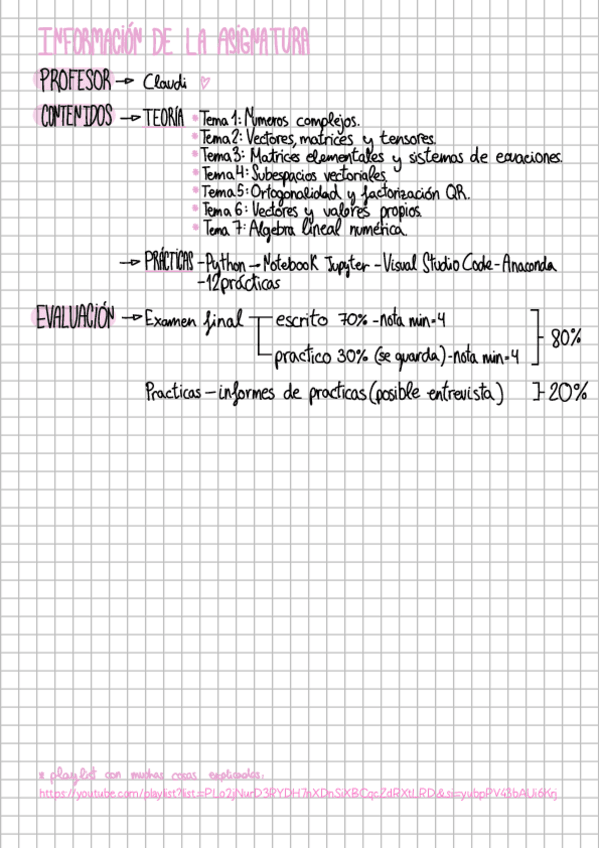 INFORMACIÓN DE LA ASIGNATURA
PROFESOR → Claudi ♡
CONTENIDOS → TEORÍA • Tema 1: Números complejos.
• Tema 2: Vectores, matrices y tensores.
• Tema 3: Matrices elementales y sistemas de ecuaciones.
• Tema 4: Subespacios vectoriales.
• Tema 5: Ortogonalidad y factorización QR.
• Tema 6: Vectores y valores propios.
• Tema 7: Algebra lineal numérica.
→ PRÁCTICAS - Python - Notebook Jupyter - Visual Studio Code - Anaconda
- 12 prácticas
EVALUACIÓN → Examen final escrito 70% - nota min=4
80%
practico 30% (se guarda) - nota min=4
Practicas - informes de practicas (posible entrevista) 20%
* playlist con muchas cosas explicadas:
https://youtube.com/playlist?list=PLo2jNurD3RYDH7nXDnSiXBCqcZdRXtLRD&si=yubpPV43bAUi6Krj